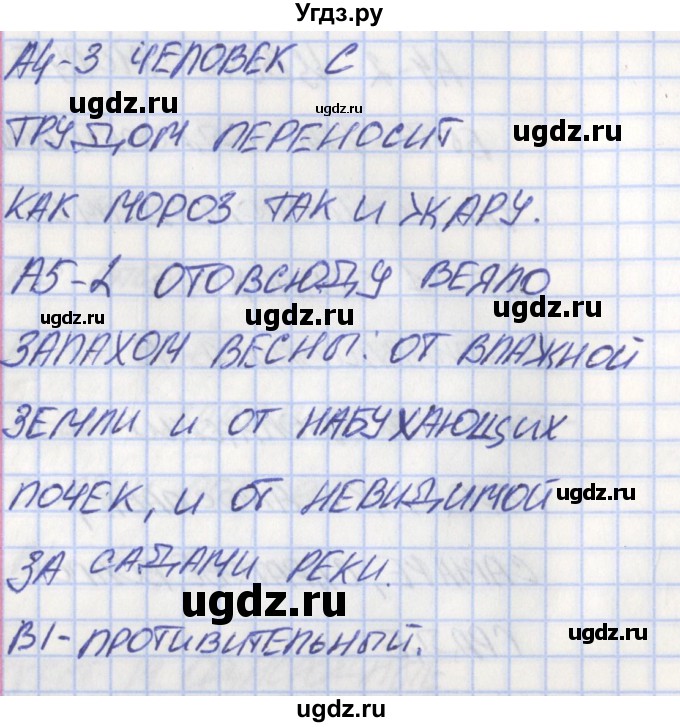 Угдз.ру
А4-3 ЧЕЛОВЕК С
ugdz.ru ugdz.ru
ТРУДОМ ПЕРЕНОСИТ
ugdz.ru
КАК МОРОЗ ТАК И ЖАРУ.
А5-2 ОТОВСЮДУ ВЕЯЛО
ugdz.ru ugdz.ru ugdz.ru
ЗАПАХОМ ВЕСНЫ: ОТ ВЛАЖНОЙ
ЗЕМЛИ И ОТ НАБУХАЮЩИХ
ugdz.ru ugdz.ru
ПОЧЕК, И ОТ НЕВИДИМОЙ
ugdz.ru
ЗА САДАМИ РЕКИ.
ugdz.ru
В1-ПРОТИВИТЕЛЬНЫЙ.
ugdz.ru